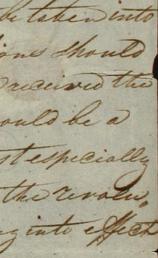 be taken into
ions should
received the
ould be a
st especially
the revenu
ing into effect